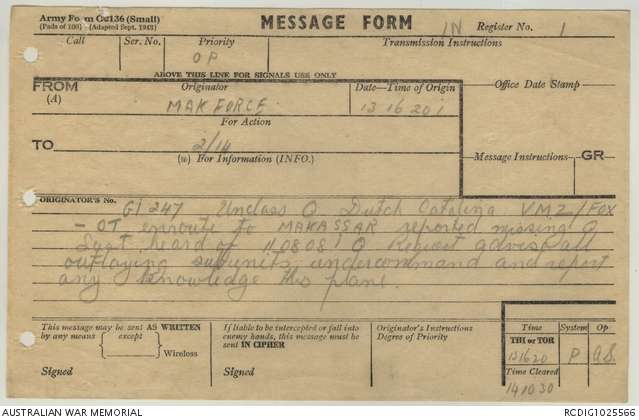 Army Form C2136 (Small)
(Pads of 100) (Adapted Sept. 1943)
MESSAGE FORM
IN
Register No. 1
Call
Ser. No.
Priority
OP
Transmission Instructions
ABOVE THIS LINE FOR SIGNALS USE ONLY
FROM
(A)
Originator
MAKFORCE
Date—Time of Origin
131620 I
Office Date Stamp
For Action
TO
2/14
(W) For Information (INFO.)
Message Instructions
GR
ORIGINATOR'S No.
GI 247 Unclass O Dutch Catalina VMZ/FOX
- OT enroute to MAKASSAR reported missing O
Last heard of 110808 I O Request advise all
outlaying subunits undercommand and report
any knowledge this plane
This message may be sent AS WRITTEN
by any means { except } Wireless
Signed
If liable to be intercepted or fall into
enemy hands, this message must be
sent IN CIPHER
Signed
Originator's Instructions
Degree of Priority
Time System Op
THI or TOR
131620 P
Time Cleared
141030
AUSTRALIAN WAR MEMORIAL
RCDIG1025566